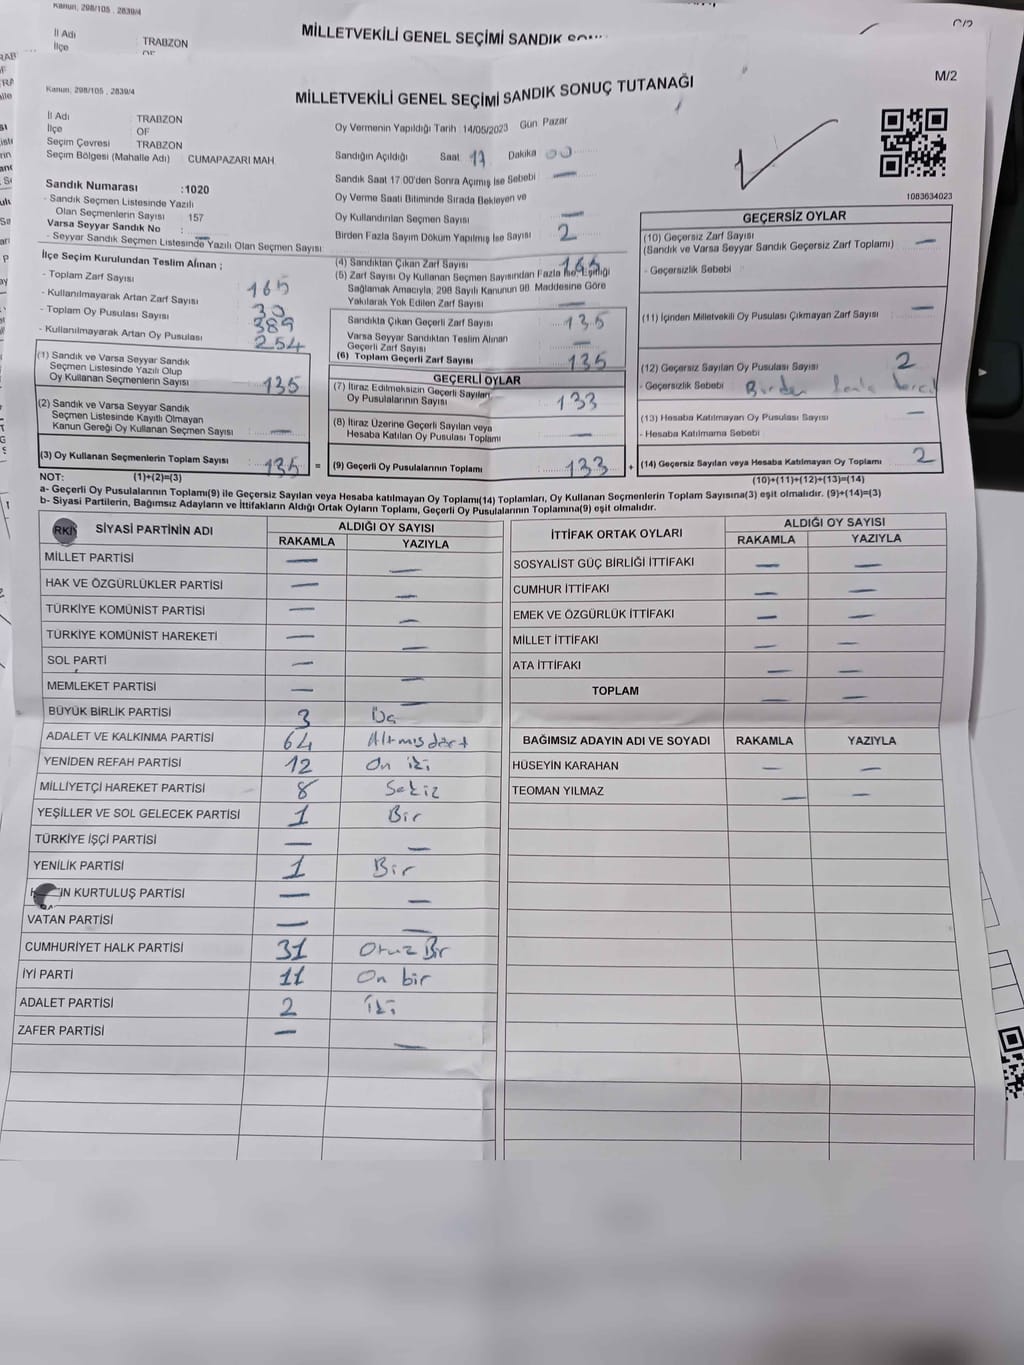 Kanun, 298/105 , 2839/4
İl Adı TRABZON
İlçe
MİLLETVEKİLİ GENEL SEÇİMİ SANDIK
Kanun, 298/105 , 2839/4
MİLLETVEKİLİ GENEL SEÇİMİ SANDIK SONUÇ TUTANAĞI
M/2
İl Adı : TRABZON
İlçe : OF
Seçim Çevresi : TRABZON
Seçim Bölgesi (Mahalle Adı) : CUMAPAZARI MAH.
Sandık Numarası :1020
- Sandık Seçmen Listesinde Yazılı
Olan Seçmenlerin Sayısı : 157
Varsa Seyyar Sandık No :
- Seyyar Sandık Seçmen Listesinde Yazılı Olan Seçmen Sayısı:
Oy Vermenin Yapıldığı Tarih : 14/05/2023 Gün Pazar
Sandığın Açıldığı Saat 17 Dakika 00
Sandık Saat 17:00'den Sonra Açımış İse Sebebi —
Oy Verme Saati Bitiminde Sırada Bekleyen ve
Oy Kullandırılan Seçmen Sayısı —
Birden Fazla Sayım Döküm Yapılmış İse Sayısı 2
1083634023
İlçe Seçim Kurulundan Teslim Alınan ;
- Toplam Zarf Sayısı 165
- Kullanılmayarak Artan Zarf Sayısı 30
- Toplam Oy Pusulası Sayısı 389
- Kullanılmayarak Artan Oy Pusulası 254
(1) Sandık ve Varsa Seyyar Sandık
Seçmen Listesinde Yazılı Olup
Oy Kullanan Seçmenlerin Sayısı 135
(2) Sandık ve Varsa Seyyar Sandık
Seçmen Listesinde Kayıtlı Olmayan
Kanun Gereği Oy Kullanan Seçmen Sayısı —
(3) Oy Kullanan Seçmenlerin Toplam Sayısı 135 =
(4) Sandıktan Çıkan Zarf Sayısı
(5) Zarf Sayısı Oy Kullanan Seçmen Sayısından Fazla İse, Eşitliği
Sağlamak Amacıyla, 298 Sayılı Kanunun 98. Maddesine Göre
Yakılarak Yok Edilen Zarf Sayısı —
Sandıkta Çıkan Geçerli Zarf Sayısı 135
Varsa Seyyar Sandıktan Teslim Alınan
Geçerli Zarf Sayısı —
(6) Toplam Geçerli Zarf Sayısı 135
GEÇERLİ OYLAR
(7) İtiraz Edilmeksizin Geçerli Sayılan
Oy Pusulalarının Sayısı 133
(8) İtiraz Üzerine Geçerli Sayılan veya
Hesaba Katılan Oy Pusulası Toplamı —
(9) Geçerli Oy Pusulalarının Toplamı 133 +
GEÇERSİZ OYLAR
(10) Geçersiz Zarf Sayısı
(Sandık ve Varsa Seyyar Sandık Geçersiz Zarf Toplamı) —
- Geçersizlik Sebebi :
(11) İçinden Milletvekili Oy Pusulası Çıkmayan Zarf Sayısı —
(12) Geçersiz Sayılan Oy Pusulası Sayısı 2
- Geçersizlik Sebebi : Birden fazla tercih
(13) Hesaba Katılmayan Oy Pusulası Sayısı —
- Hesaba Katılmama Sebebi
(14) Geçersiz Sayılan veya Hesaba Katılmayan Oy Toplamı 2
NOT: (1)+(2)=(3) (10)+(11)+(12)+(13)=(14)
a- Geçerli Oy Pusulalarının Toplamı(9) ile Geçersiz Sayılan veya Hesaba katılmayan Oy Toplamı(14) Toplamları, Oy Kullanan Seçmenlerin Toplam Sayısına(3) eşit olmalıdır. (9)+(14)=(3)
b- Siyasi Partilerin, Bağımsız Adayların ve İttifakların Aldığı Ortak Oyların Toplamı, Geçerli Oy Pusulalarının Toplamına(9) eşit olmalıdır.
SİYASİ PARTİNİN ADI ALDIĞI OY SAYISI
RAKAMLA YAZIYLA
MİLLET PARTİSİ — —
HAK VE ÖZGÜRLÜKLER PARTİSİ — —
TÜRKİYE KOMÜNİST PARTİSİ — —
TÜRKİYE KOMÜNİST HAREKETİ — —
SOL PARTİ — —
MEMLEKET PARTİSİ — —
BÜYÜK BİRLİK PARTİSİ 3 Üç
ADALET VE KALKINMA PARTİSİ 64 Altmış dört
YENİDEN REFAH PARTİSİ 12 On iki
MİLLİYETÇİ HAREKET PARTİSİ 8 Sekiz
YEŞİLLER VE SOL GELECEK PARTİSİ 1 Bir
TÜRKİYE İŞÇİ PARTİSİ — —
YENİLİK PARTİSİ 1 Bir
KURTULUŞ PARTİSİ — —
VATAN PARTİSİ — —
CUMHURİYET HALK PARTİSİ 31 Otuz Bir
İYİ PARTİ 11 On bir
ADALET PARTİSİ 2 İki
ZAFER PARTİSİ — —
İTTİFAK ORTAK OYLARI ALDIĞI OY SAYISI
RAKAMLA YAZIYLA
SOSYALİST GÜÇ BİRLİĞİ İTTİFAKI — —
CUMHUR İTTİFAKI — —
EMEK VE ÖZGÜRLÜK İTTİFAKI — —
MİLLET İTTİFAKI — —
ATA İTTİFAKI — —
TOPLAM — —
BAĞIMSIZ ADAYIN ADI VE SOYADI RAKAMLA YAZIYLA
HÜSEYİN KARAHAN — —
TEOMAN YILMAZ — —